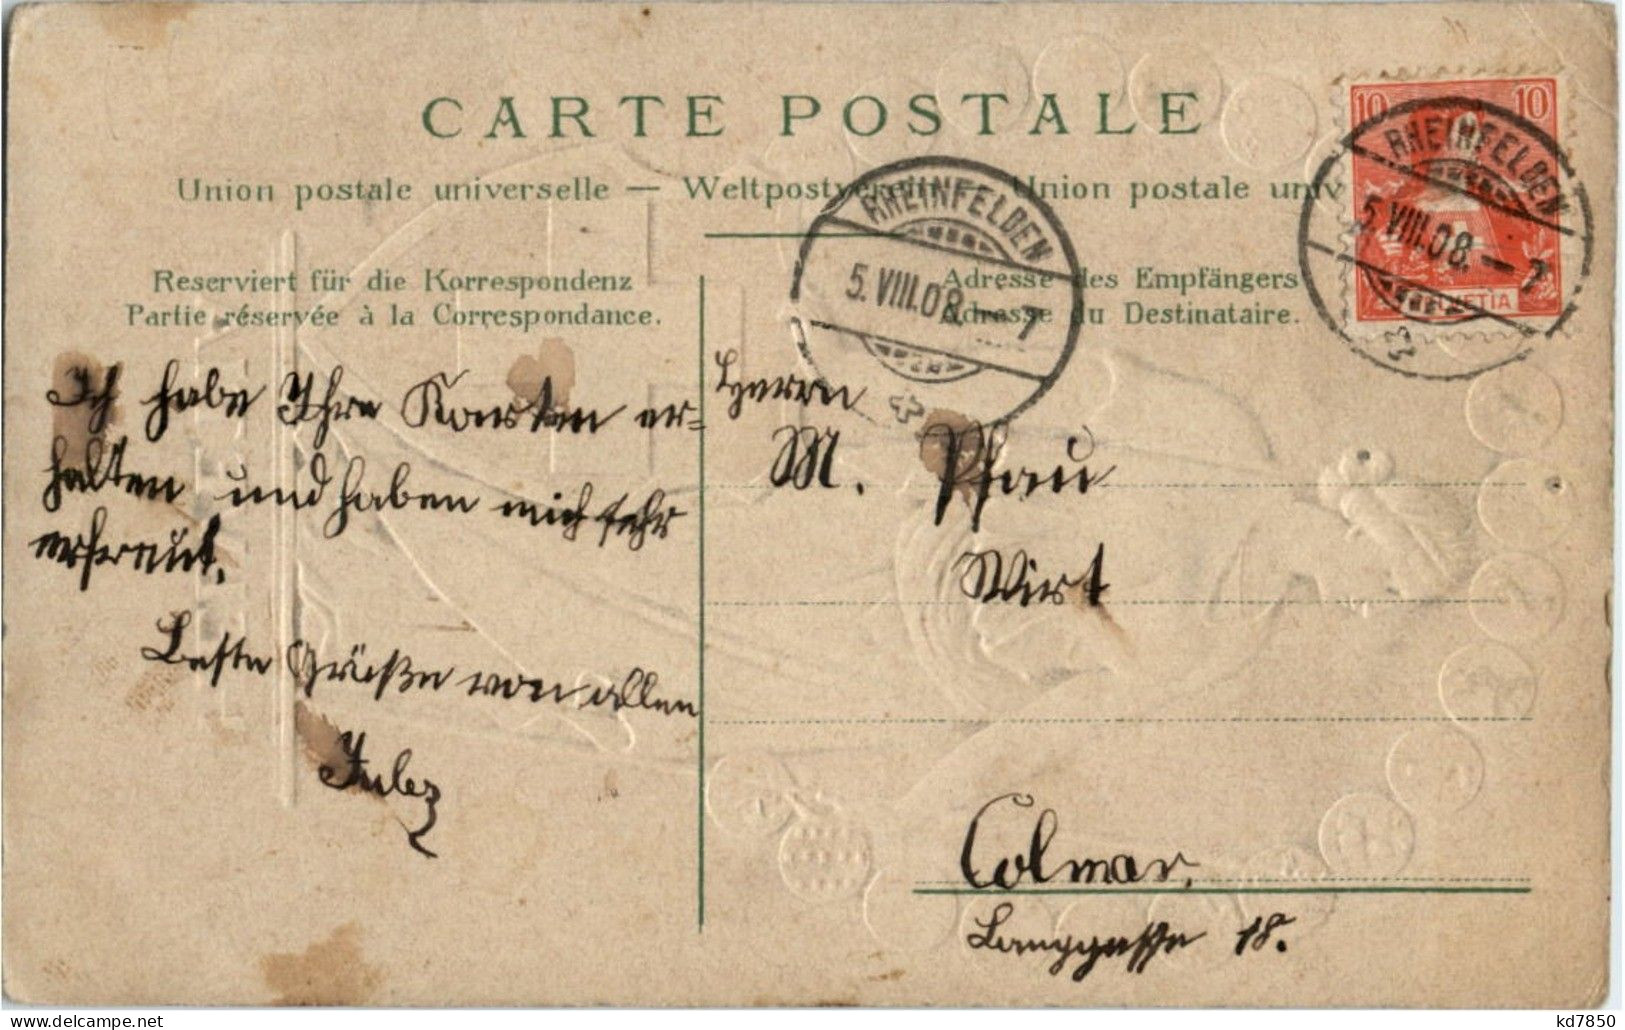 CARTE POSTALE
Union postale universelle — Weltpostverein — Union postale univ
Reserviert für die Korrespondenz
Partie réservée à la Correspondance.
Adresse des Empfängers
Adresse du Destinataire.
RHEINFELDEN
5.VIII.08.–7
10 10
HELVETIA
RHEINFELDEN
5.VIII.08.–7
Ich habe Ihre Karten er=
halten und haben mich sehr
erfreut.
Beste Grüße von allen
Julez
Herrn
M. Pfau
Wirt
Colmar.
Langgasse 18.
kd7850